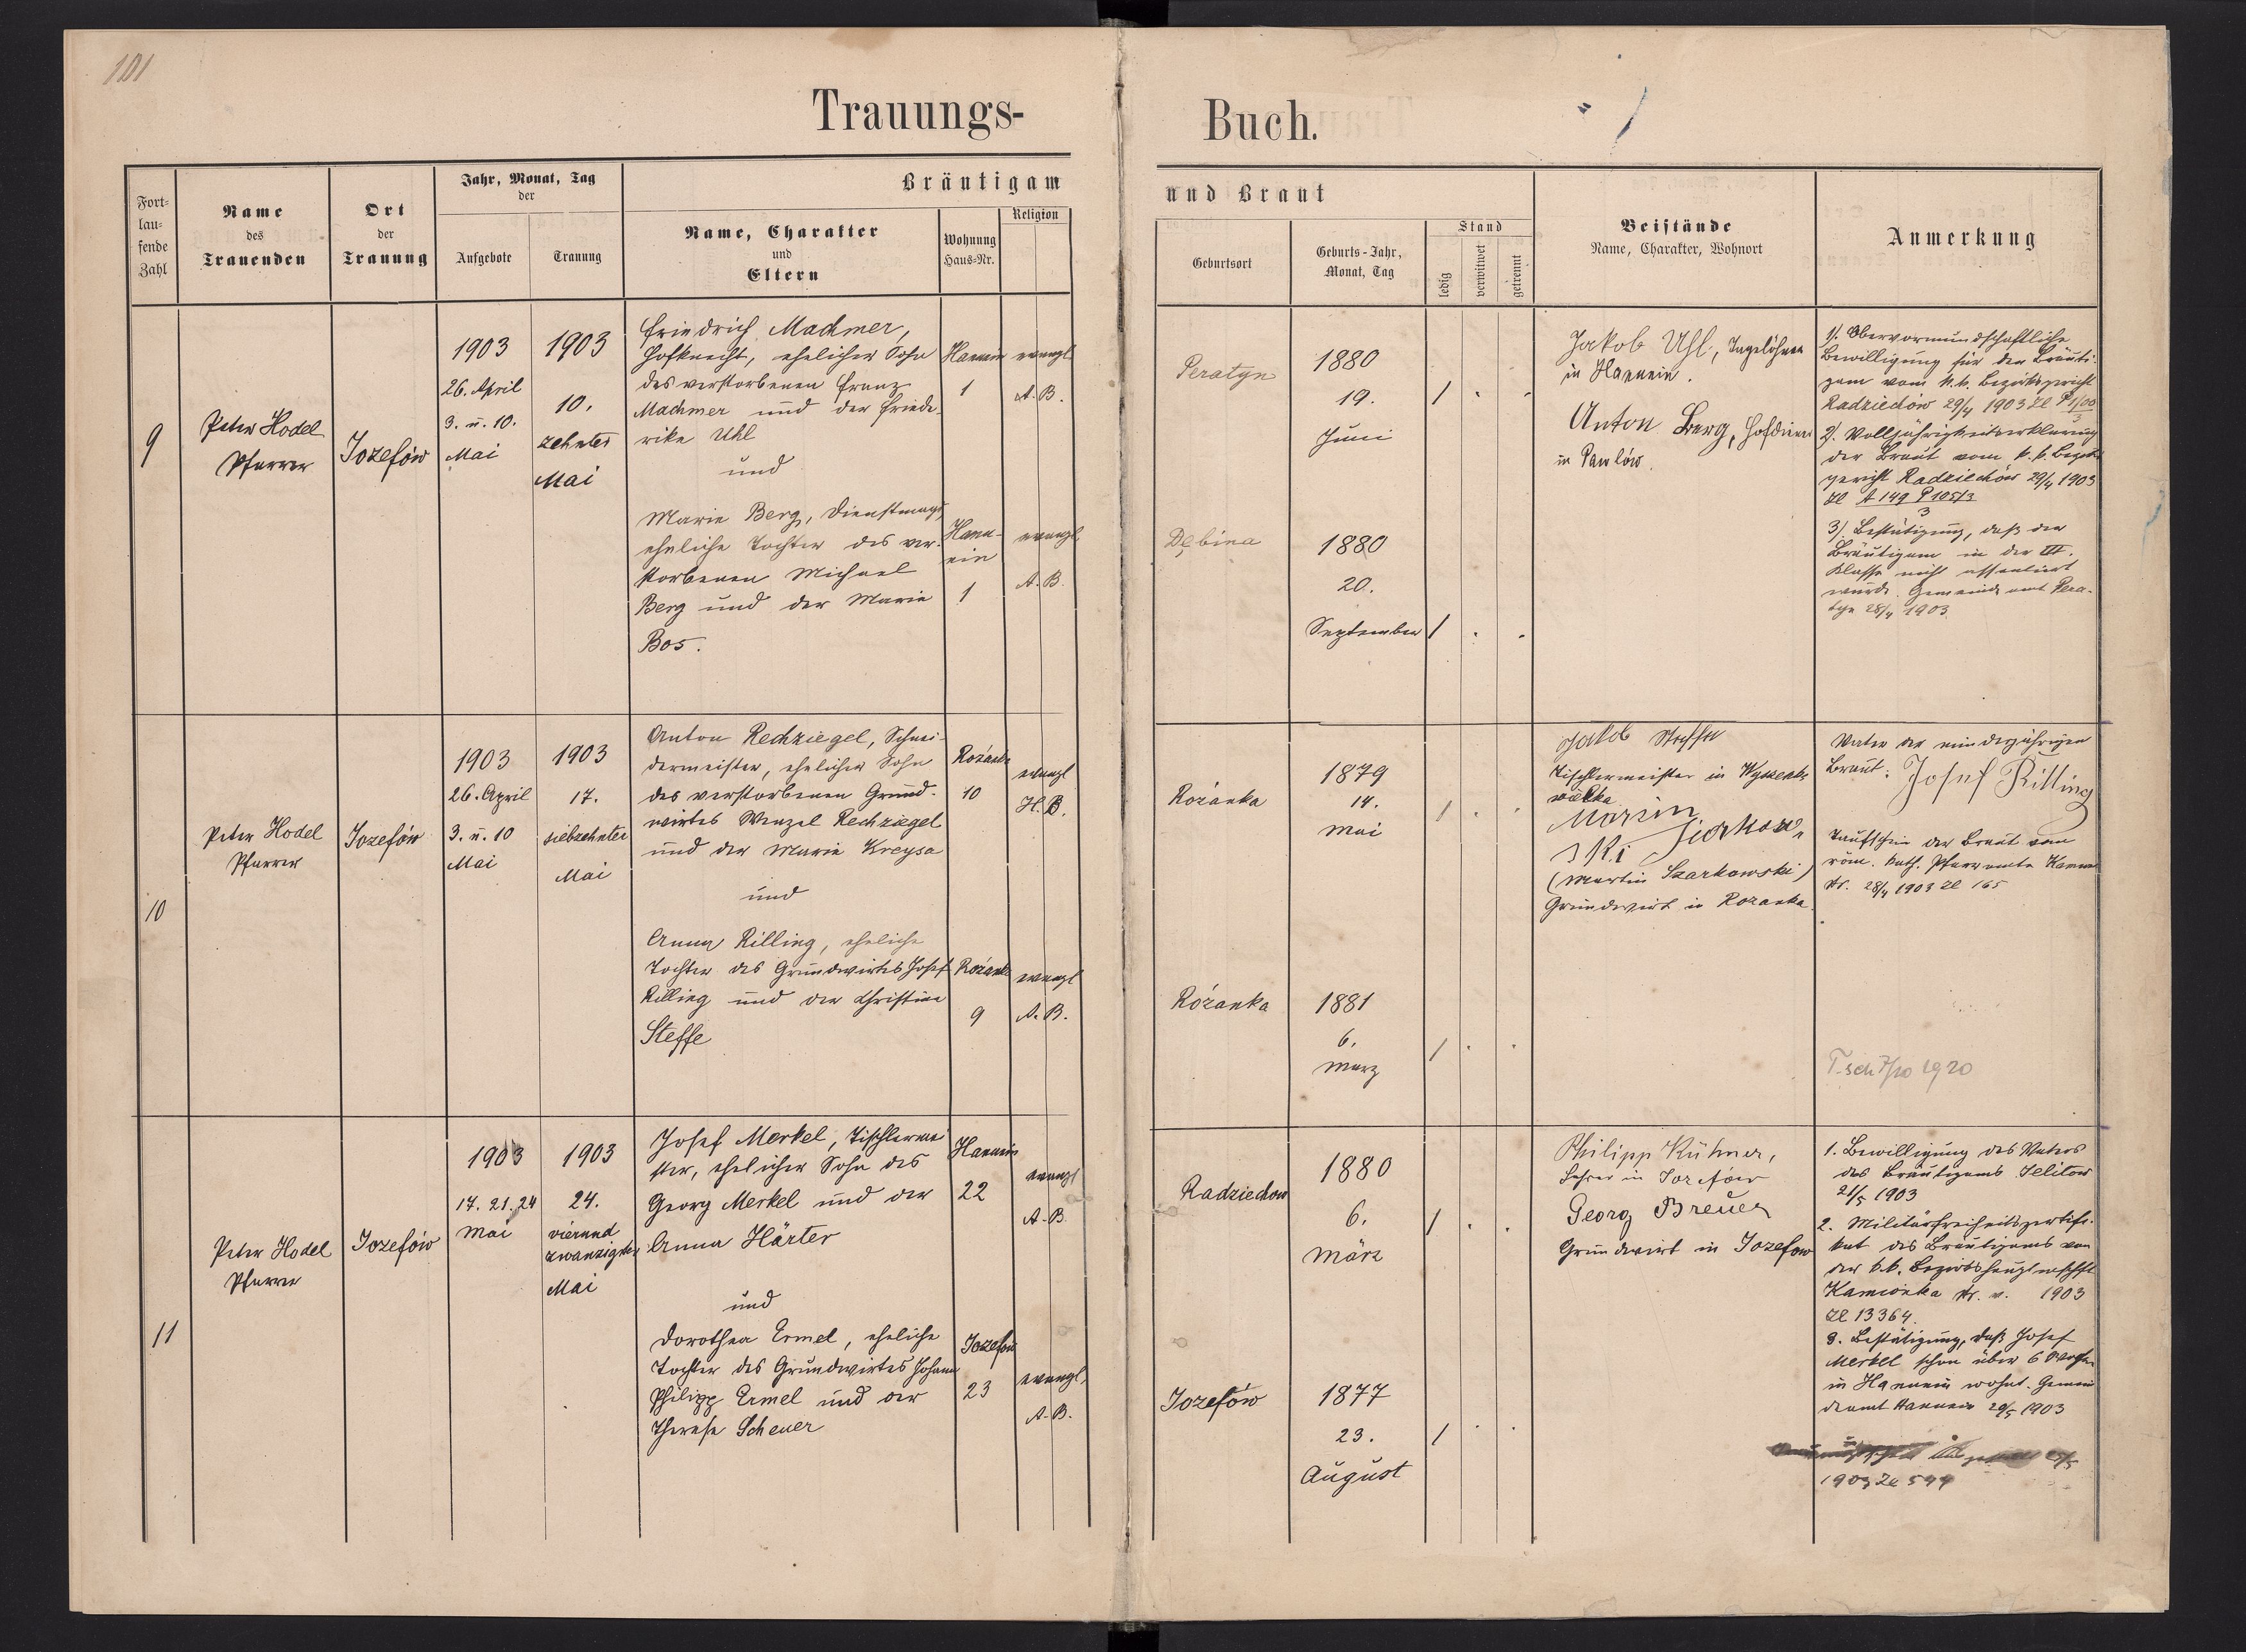 101
Trauungs-
Buch.
Fort-
lau-
fende
Zahl
Name
des
Trauenden
Ort
der
Trauung
Jahr, Monat, Tag
der
Aufgebote
Trauung
Bräutigam
Name, Charakter
und
Eltern
Wohnung
Haus-Nr.
Religion
und Braut
Geburtsort
Geburts-Jahr,
Monat, Tag
Stand
ledig
verwitwet
getrennt
Beistände
Name, Charakter, Wohnort
Anmerkung
9
Peter Hodel
Pfarrer
Jozefów
1903
26. April
3. u. 10.
Mai
1903
10.
zehnter
Mai
Friedrich Machmer,
Hofknecht, ehelicher Sohn
des verstorbenen Franz
Machmer und der Friede-
rike Uhl
und
Marie Berg, Dienstmagd,
eheliche Tochter des ver-
storbenen Michael
Berg und der Marie
Bos.
Hanunin
1
evangl.
A. B.
Hanu-
nin
1
evangl.
A. B.
Peratyn
1880
19.
Juni
1 . .
Dębina
1880
20.
September
1 . .
Jakob Uhl, Tagelöhner
in Hanunin.
Anton Berg, Hofdiener
in Pawlów.
1). Obervormundschaftliche
Bewilligung für den Bräuti-
gam vom k. k. Bezirksgericht
Radziechów 29/4 1903 Zl
2). Volljährigkeitserklärung
der Braut vom k. k. Bezirks
gericht Radziechów 29/4 1903
Zl A 149 P 105/3
3
3). Bestätigung, daß der
Bräutigam in der III.
Klasse nicht assentiert
wurde. Gemeindeamt Pera-
tyn 28/4 1903.
10
Peter Hodel
Pfarrer
Jozefów
1903
26. April
3. u. 10
Mai
1903
17.
siebzehnter
Mai
Anton Rechziegel, Schnei-
dermeister, ehelicher Sohn
des verstorbenen Grund-
wirtes Wenzel Rechziegel
und der Marie Kreysa
und
Anna Rilling, eheliche
Tochter des Grundwirtes Josef
Rilling und der Christine
Steffe
Rożanka
10
evangl
H. B.
Rożanka
9
evangl
A. B.
Rożanka
1879
14.
Mai
1 . .
Rożanka
1881
6.
März
1 . .
Jakob Steffe
Tischlermeister in
Marsin
(Martin Szarkowski)
Grundwirt in Rozanka.
Vater der minderjährigen
Braut: Josef Rilling
Taufschein der Braut vom
röm. kath. Pfarramte
str. 28/4 1903 Zl 165
1920
11
Peter Hodel
Pfarrer
Jozefów
1903
17. 21. 24
Mai
1903
24.
vierund
zwanzigster
Mai
Josef Merkel, Tischlermei
ster, ehelicher Sohn des
Georg Merkel und der
Anna Härter
und
Dorothea Ermel, eheliche
Tochter des Grundwirtes Johann
Philipp Ermel und der
Therese Scheuer
Hanunin
22
evangl
A. B.
Jozefów
23
evangl.
A. B.
Radziechow
1880
6.
März
1 . .
Jozefów
1877
23.
August
1 . .
Philipp Kühner,
Lehrer in Jozefów
Georg Breuer
Grundwirt in Jozefow
1. Bewilligung des Vaters
des Bräutigams
21/5 1903
2. Militärfreiheitszertifi-
kat des Bräutigams von
der k. k. Bezirkshauptmschft
Kamionka str. v. 1903
Zl 13364.
3. Bestätigung, daß Josef
Merkel schon über 6 Wochen
in Hanunin wohnt. Gemein
deamt Hanunin 20/5 1903
1903 Zl 599